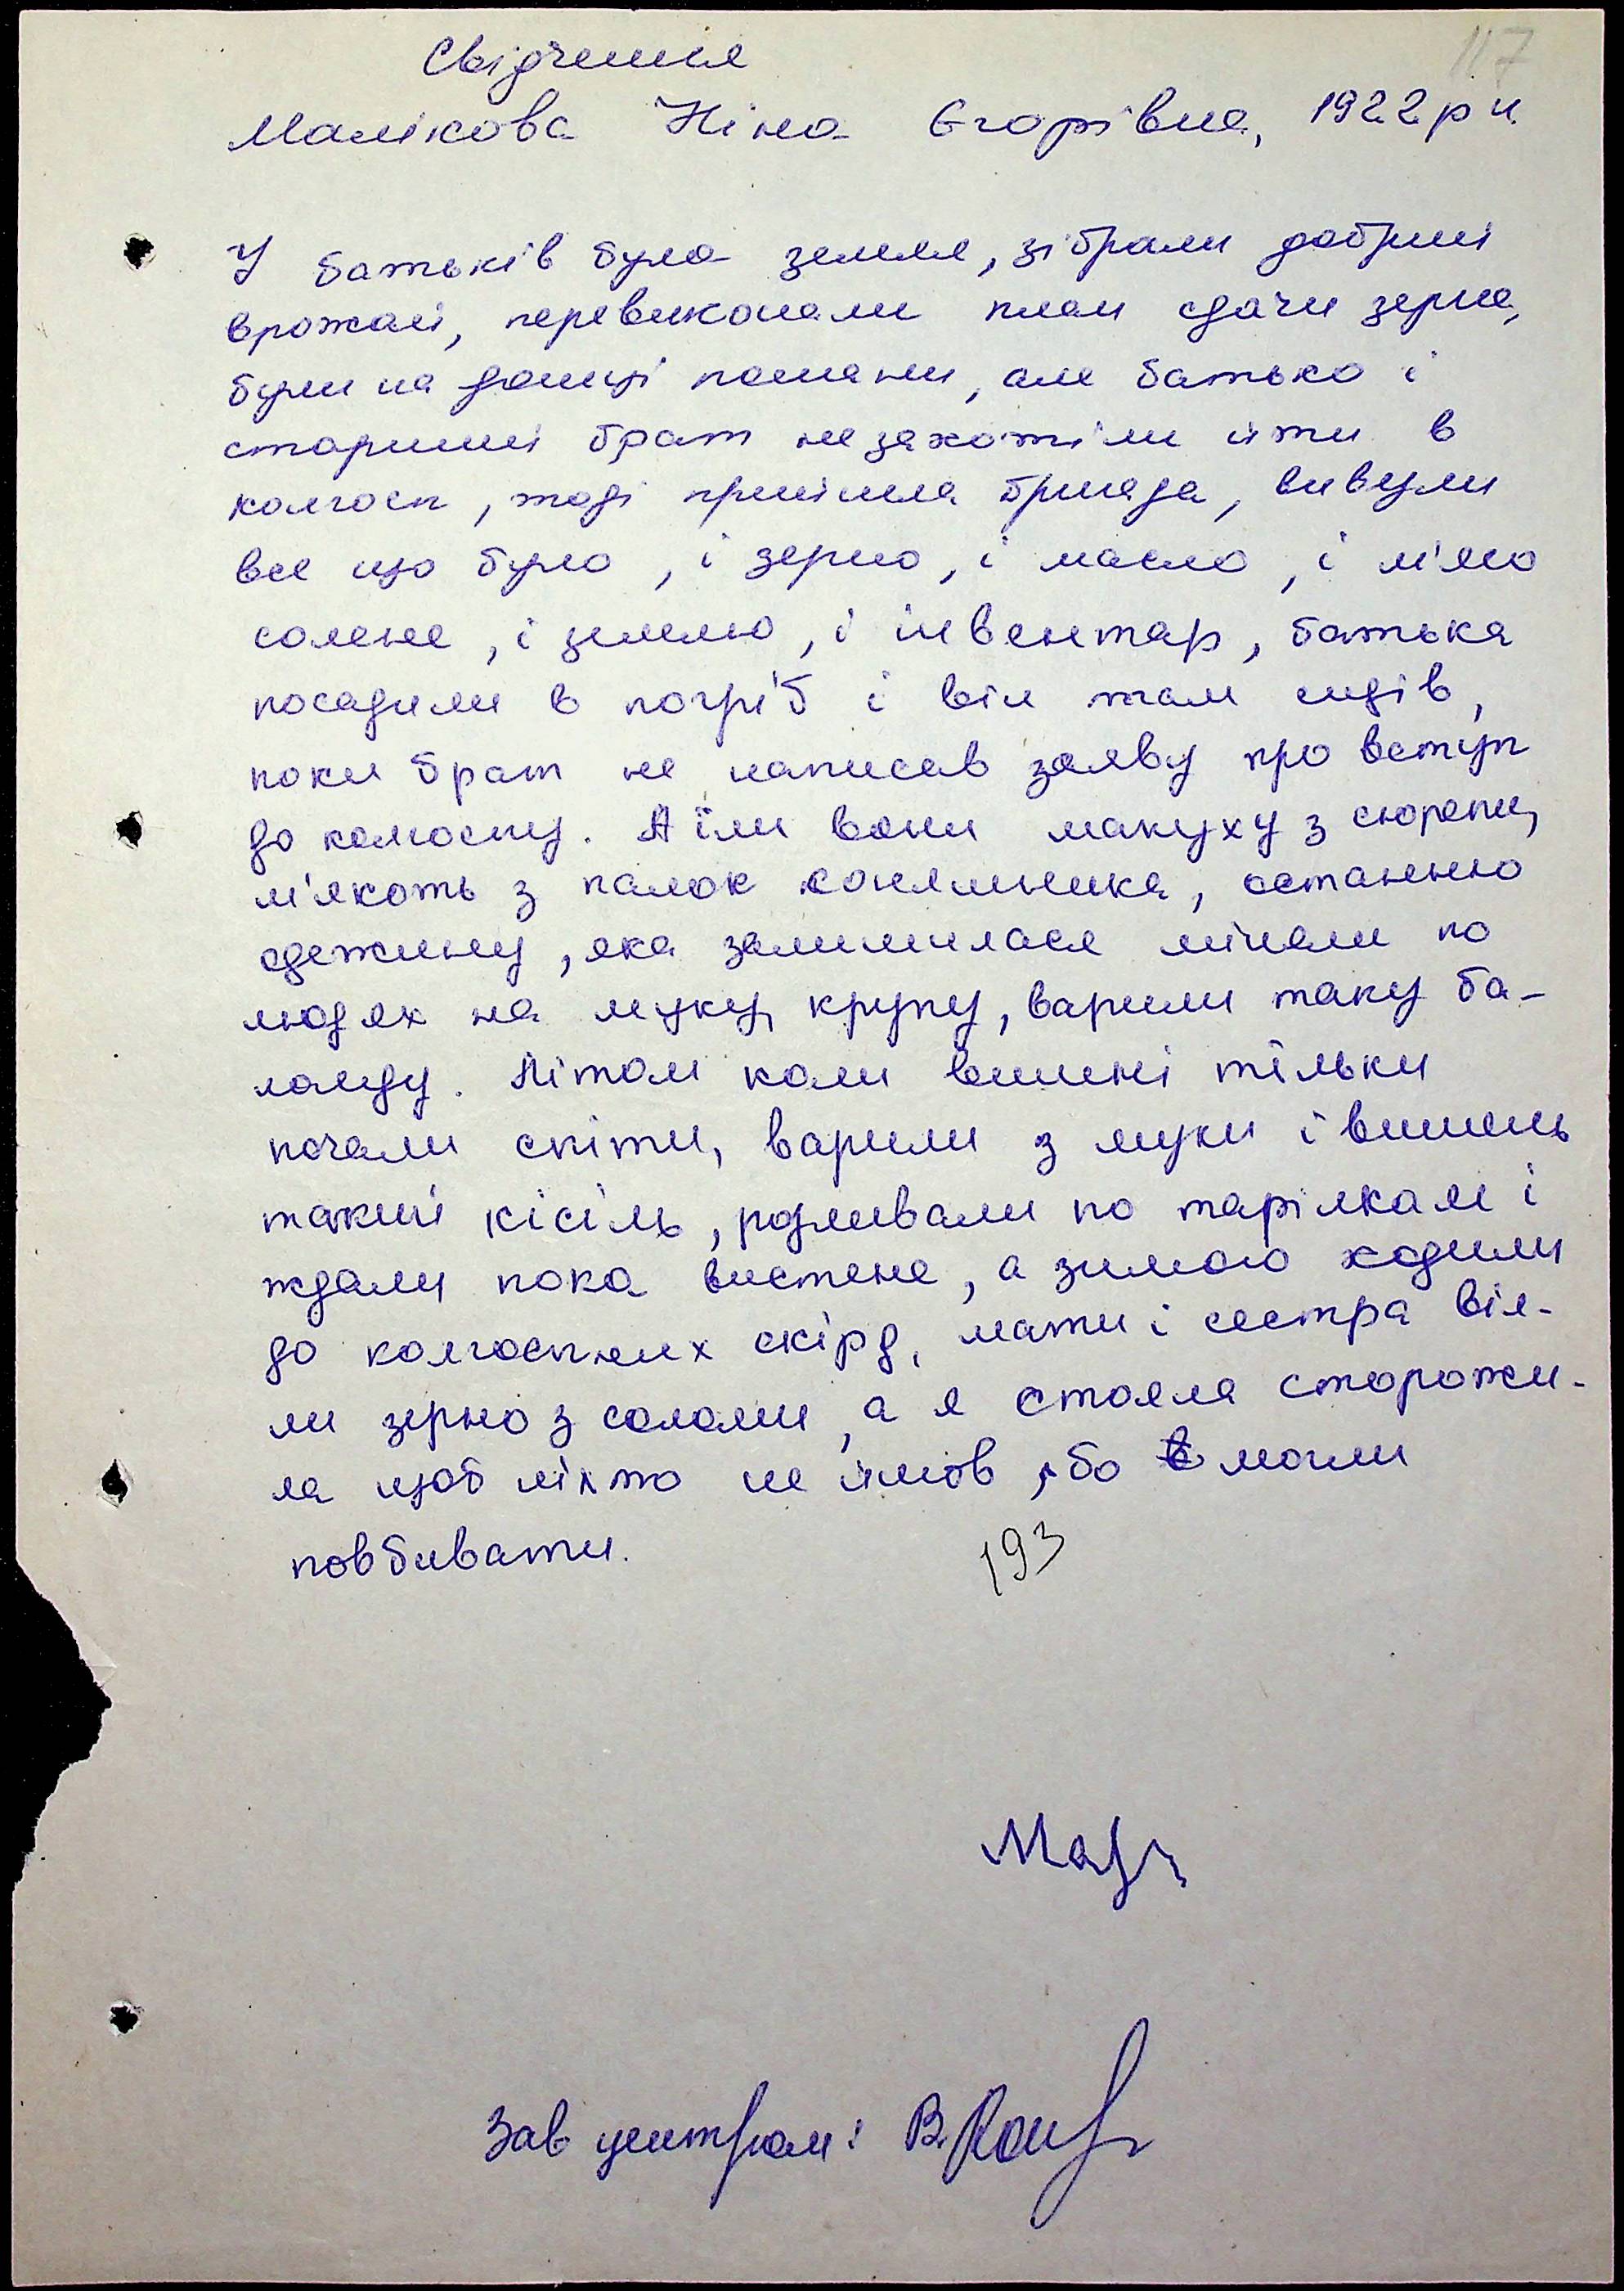 117
Свідчення
Малікова Ніна Єгорівна, 1922 р н.
У батьків була земля, зібрали добрий
врожай, перевиконали план сдачи зерна,
були на дошці пошани, але батько і
старший брат незахотіли йти в
колгосп, тоді прийшла бригада, вивезли
все що було, і зерно, і масло, і м'ясо
солене, і землю, і інвентар, батька
посадили в погріб і він там сидів,
поки брат не написав заяву про вступ
до колгоспу. А їли вони макуху з сюрепи,
м'якоть з палок соняшника, останню
одежину, яка залишилася міняли по
людях на муку, крупу, варили таку ба-
ланду. Літом коли вишні тільки
почали спіти, варили з муки і вишень
такий кісіль, розливали по тарілкам і
ждали пока вистене, а зимою ходили
до колгоспних скірд, мати і сестра вія-
ли зерно з соломи, а я стояла сторожи-
ла щоб ніхто не йшов, бо могли
повбивати.
193
Зав центром: В.